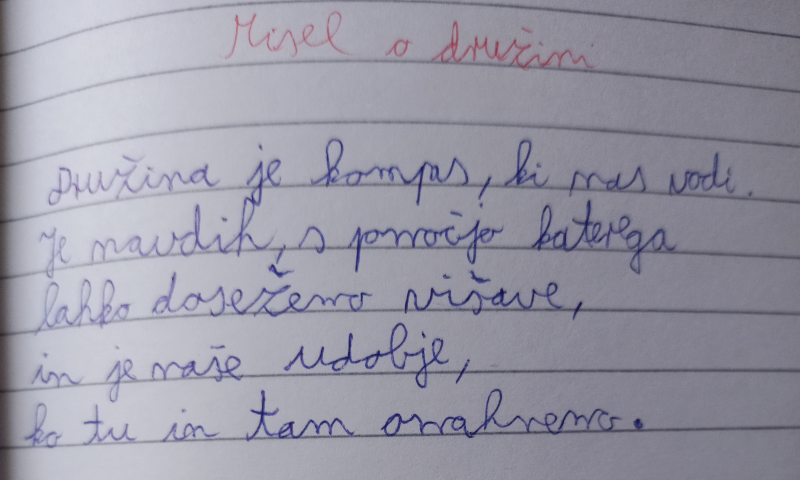 Misel o družini
Družina je kompas, ki nas vodi.
Je navdih, s pomočjo katerega
lahko dosežemo višave,
in je naše udobje,
ko tu in tam omahnemo.